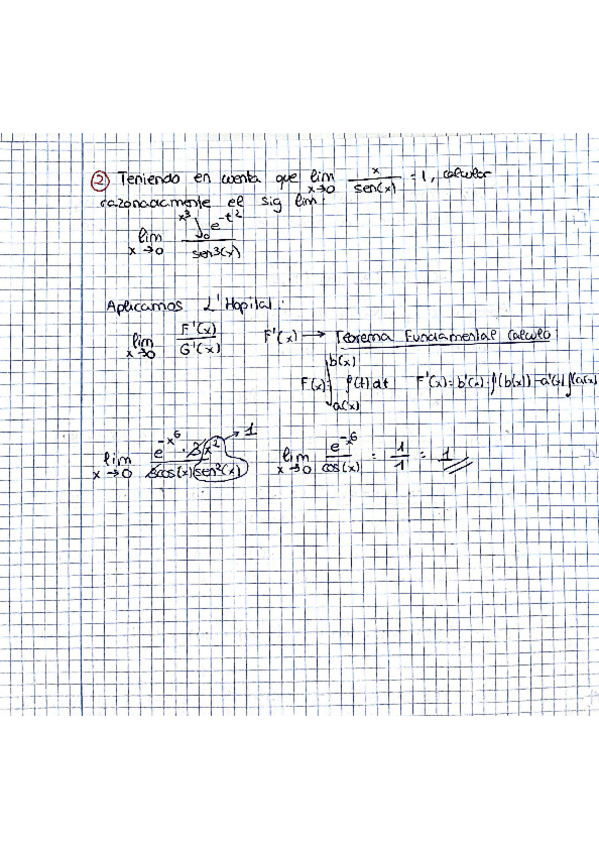 ② Teniendo en cuenta que lim x→0 x/sen(x) = 1, calcular
razonadamente el sig lim:
lim x→0 (∫₀^x³ e^-t²)/(sen3(x))
Aplicamos L'Hopital:
lim x→0 F'(x)/G'(x)    F'(x) → Teorema Fundamental Calculo
F(x) = ∫_a(x)^b(x) f(t) dt    F'(x) = b'(x)·f(b(x)) - a'(x) f(a(x)
lim x→0 (e^-x⁶ · 3x²)/(3cos(x) sen²(x)) → 1    lim x→0 e^-x⁶/cos(x) = 1/1 = 1